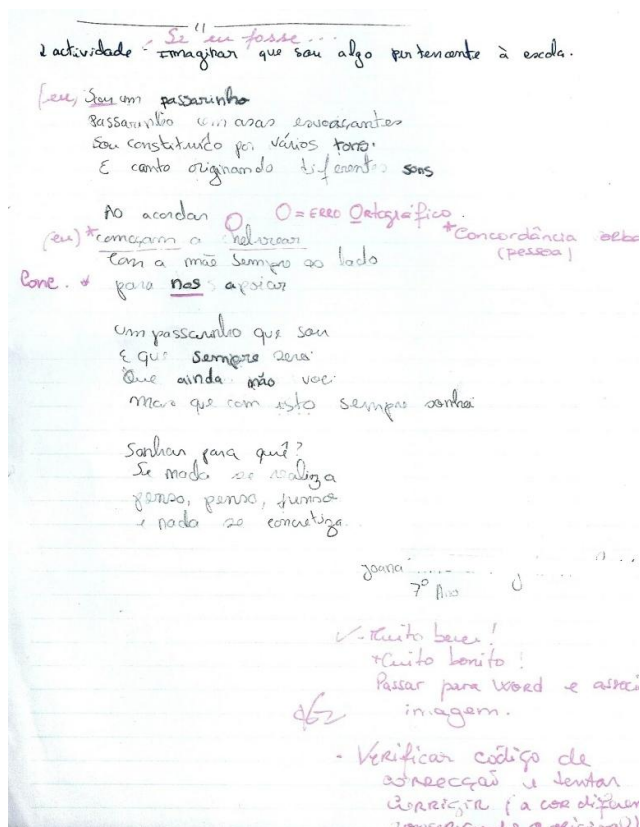 Se eu fosse...
2 actividade - Imaginar que sou algo pertencente à escola.
(eu) Sou um passarinho
Passarinho com asas esvoaçantes
Sou constituído por vários tons
E canto originando diferentes sons
Ao acordar
O = Erro Ortográfico.
(eu) * começam a
* Concordância
(pessoa)
Com a mãe sempre ao lado
Conc. * para nos apoiar
Um passarinho que sou
E que sempre serei
Que ainda não voei
Mas que com isto sempre sonhei
Sonhar para quê?
Se nada se realiza
penso, penso, penso
e nada se concretiza
Joana
7º Ano
- Muito bem!
Muito bonito!
Passar para Word e
imagem.
- Verificar código de
correcção e tentar
corrigir (a cor